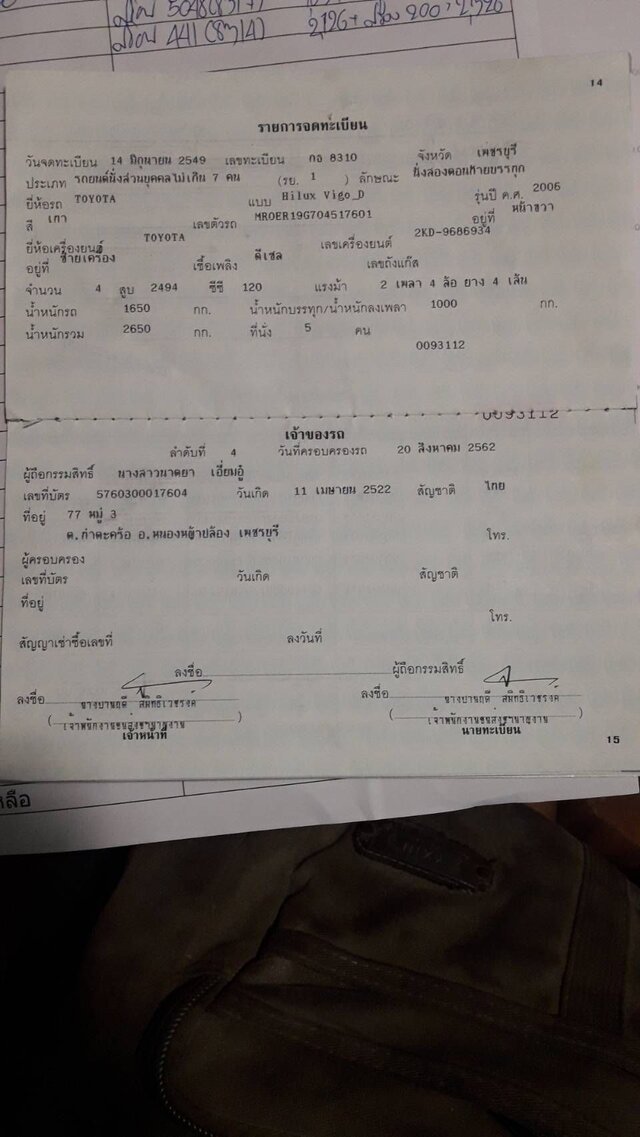 441 (8314) 2,126+ 200 = 2,326
14
รายการจดทะเบียน
วันจดทะเบียน 14 มิถุนายน 2549 เลขทะเบียน กอ 8310 จังหวัด เพชรบุรี
ประเภท รถยนต์นั่งส่วนบุคคลไม่เกิน 7 คน (รย. 1 ) ลักษณะ นั่งสองตอนท้ายบรรทุก
ยี่ห้อรถ TOYOTA แบบ Hilux Vigo_D รุ่นปี ค.ศ. 2006
สี เทา เลขตัวรถ MROER19G704517601 อยู่ที่ หน้าขวา
ยี่ห้อเครื่องยนต์ TOYOTA เลขเครื่องยนต์ 2KD-9686934
อยู่ที่ ซ้ายเครื่อง เชื้อเพลิง ดีเซล เลขถังแก๊ส
จำนวน 4 สูบ 2494 ซีซี 120 แรงม้า 2 เพลา 4 ล้อ ยาง 4 เส้น
น้ำหนักรถ 1650 กก. น้ำหนักบรรทุก/น้ำหนักลงเพลา 1000 กก.
น้ำหนักรวม 2650 กก. ที่นั่ง 5 คน
0093112
0093112
เจ้าของรถ
ลำดับที่ 4 วันที่ครอบครองรถ 20 สิงหาคม 2562
ผู้ถือกรรมสิทธิ์ นางสาวนาตยา เอี่ยมอู้
เลขที่บัตร 5760300017604 วันเกิด 11 เมษายน 2522 สัญชาติ ไทย
ที่อยู่ 77 หมู่ 3
ต.ท่าตะคร้อ อ.หนองหญ้าปล้อง เพชรบุรี โทร.
ผู้ครอบครอง
เลขที่บัตร วันเกิด สัญชาติ
ที่อยู่
โทร.
สัญญาเช่าซื้อเลขที่ ลงวันที่
ลงชื่อ ผู้ถือกรรมสิทธิ์
ลงชื่อ ลงชื่อ
(เจ้าพนักงานขนส่งชำนาญงาน) (เจ้าพนักงานขนส่งชำนาญงาน)
เจ้าหน้าที่ นายทะเบียน
15